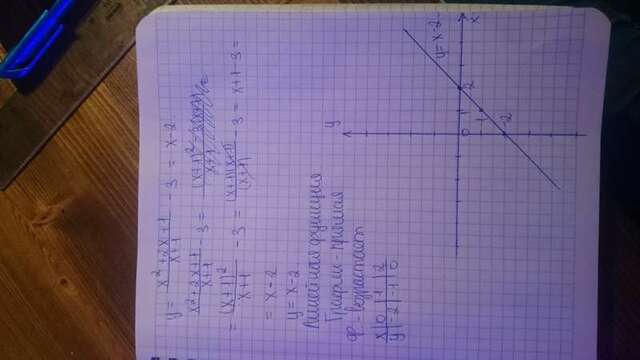 y = x²+2x+1/x+1 - 3 = x-2
x²+2x+1/x+1 - 3 =
= (x+1)²/x+1 - 3 = (x+1)(x+1)/(x+1) - 3 = x+1-3 =
= x-2
y = x-2
Линейная функция
График - прямая
ф - возрастает
x|0|1|2
y|-2|-1|0
y
y = x-2
x
0
1
2
-2